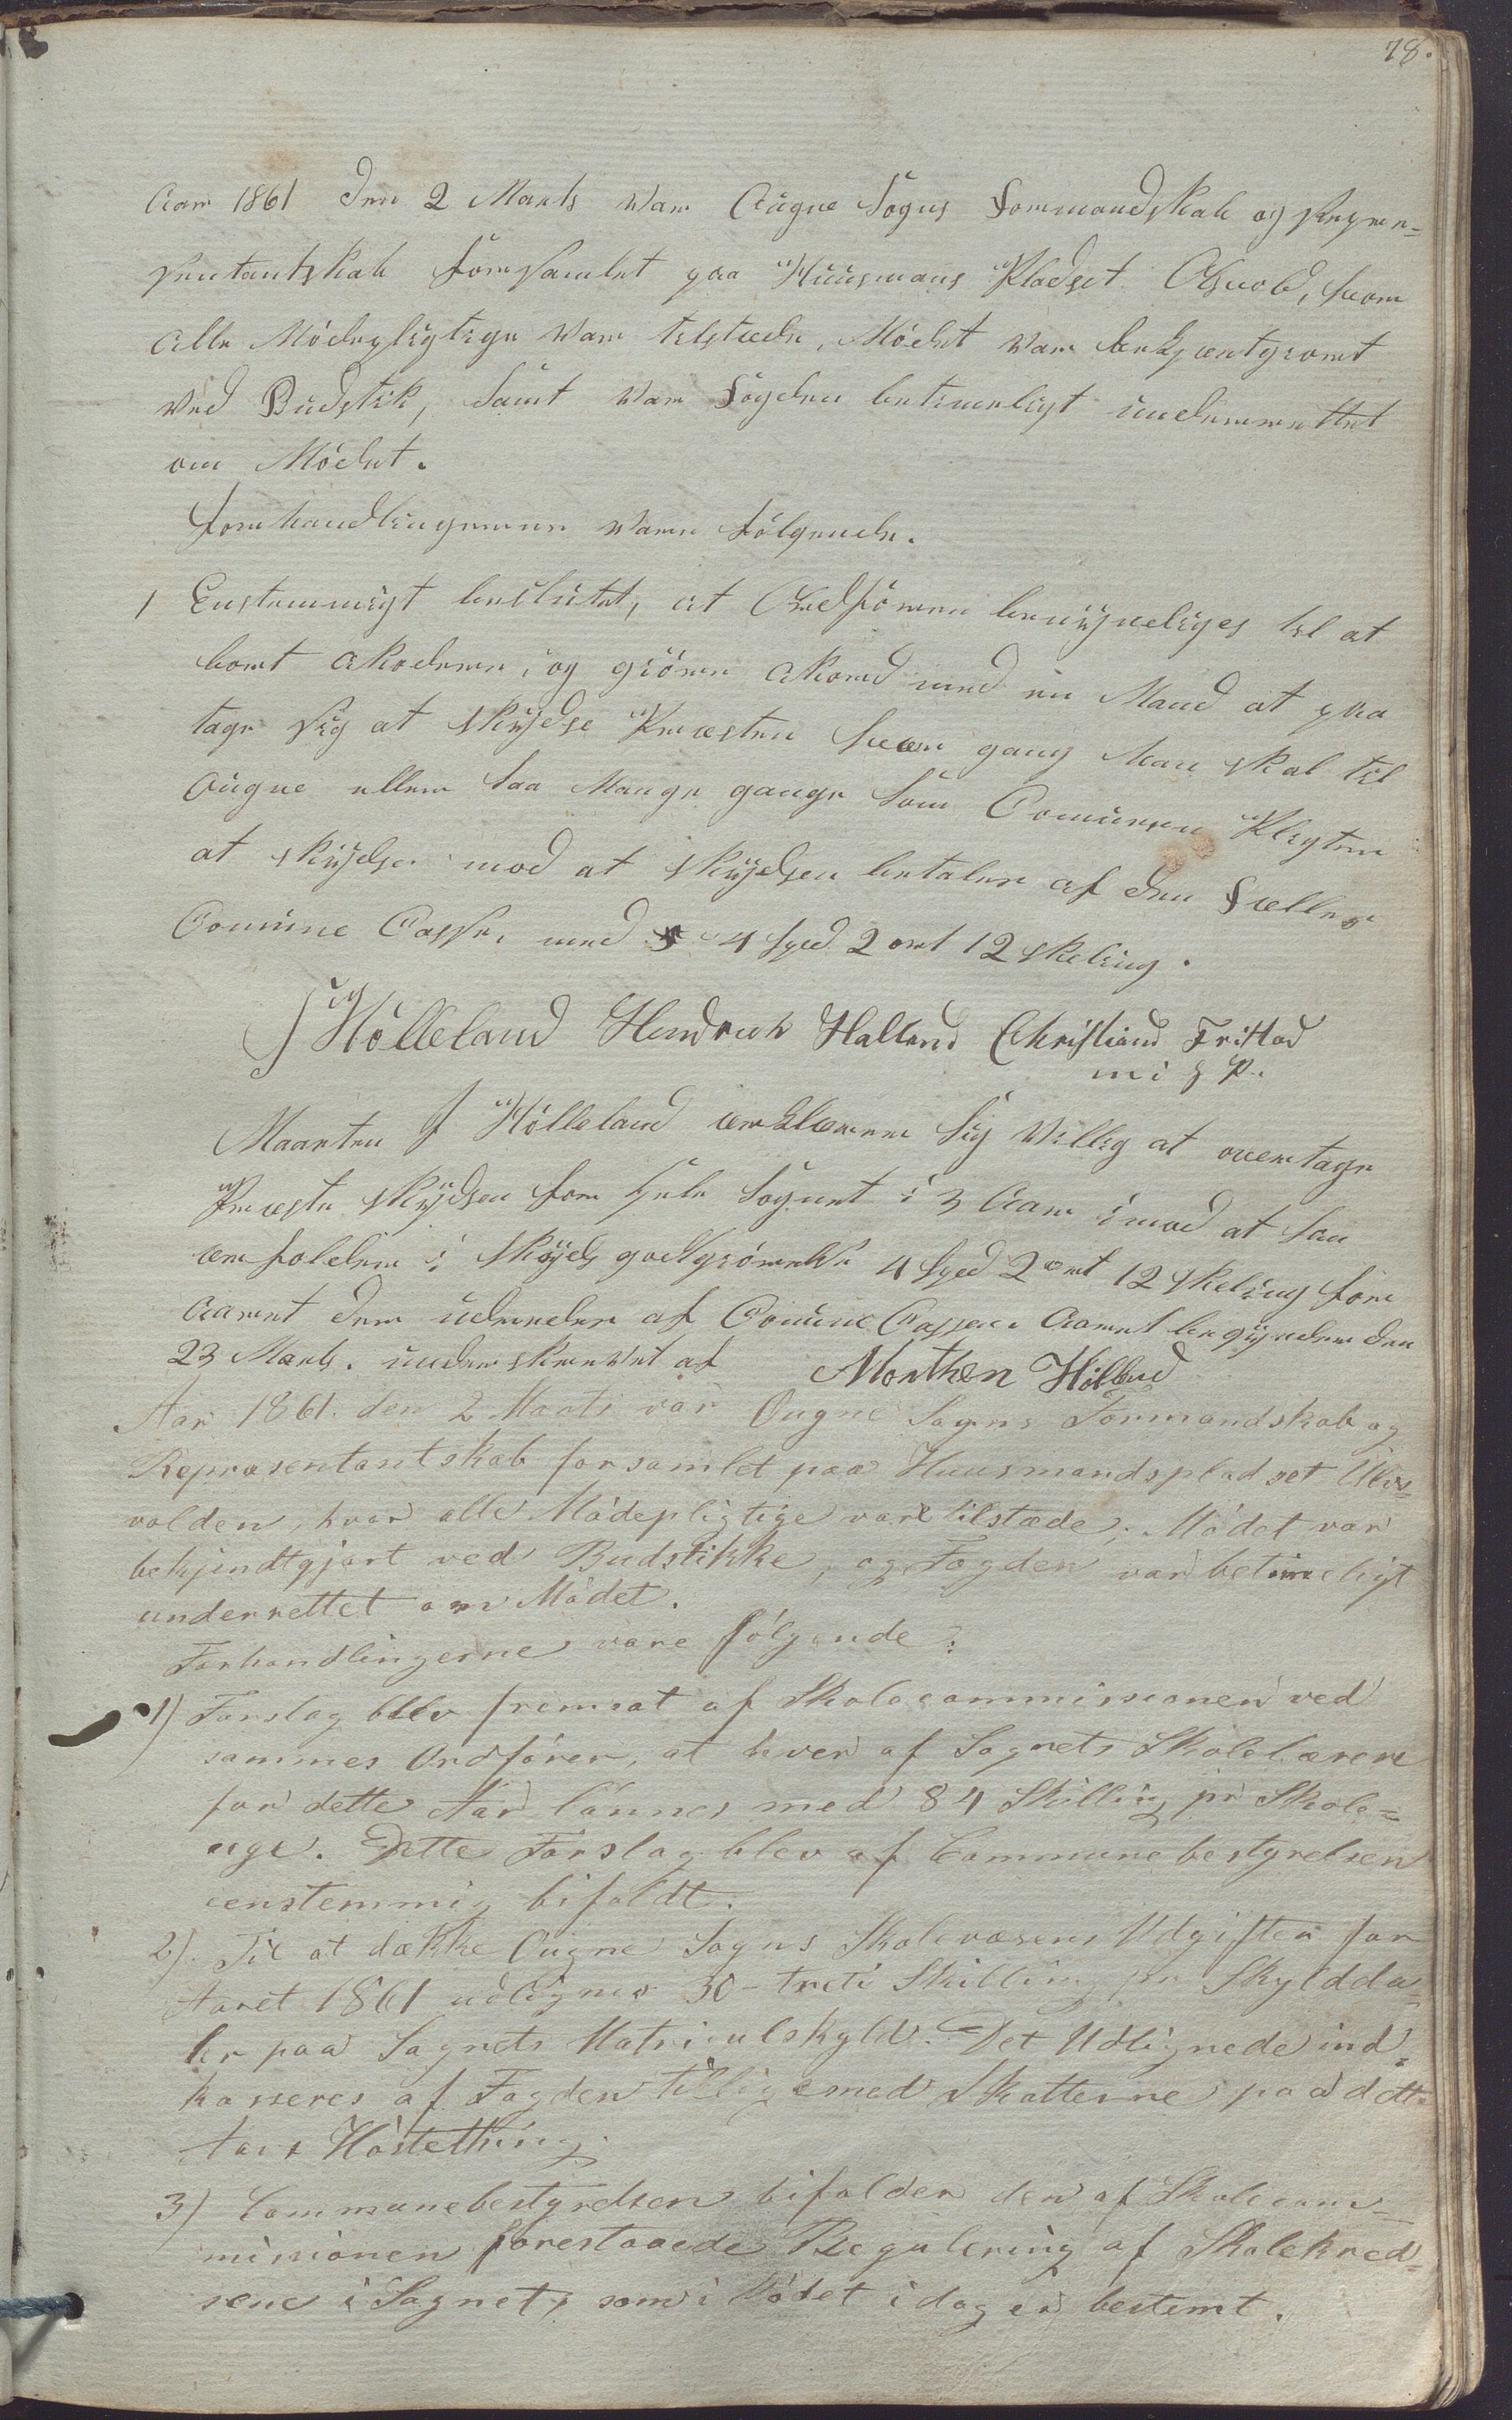 78.
Aar 1861 den 2 Marts var Augne Sogns Formandskab og Repre-
sentantskab forsamlet paa Huusmans Pladset, hvor
alle Mödepligtige var telstæde, Mödet var bekjentgiort
ved Budstik, samt var Fogden betimeligt underrettet
om Mödet.
Forhandlingerne vare fölgende.
1 Enstemmigt beslutet, at Ordföreren bemÿndiges til at
bort akordere, og giöre Akord med en Mand at paa
tage sig at skÿdse Præsten hver gang han skal til
Augne eller saa Mange gange som Comunen Pligter
at skÿdse mod at skÿdsen betales af den Fælles
Comune Casse, med 4 Spd 2 ort 12 skeling.
J Hölleland Hendrich Halland Christiand Fristad
m i g P.
Maarten J Hölleland erklærer sig villig at overtage
Præste skÿdsen for hele Sognet i 3 Aar imod at han
erholder i skÿds godtgiörelse 4 Spd 2 ort 12 skeling for
Aaret der udreder af Comune Cassen. Aaret begÿnder den
23 Marts. underskrevet af Morthen Hölland
Aar 1861. den 2 Marts var Ougne Sogns Formandskab og
Repræsentantskab forsamlet paa Huusmandspladset Ulvs-
volden, hvor alle Mödepligtige vare tilstæde; Mödet var
bekjendtgjort ved Budstikke, og Fogden var betimeligt
underrettet om Mödet.
Forhandlingerne vare fölgende:
1) Forslag blev fremsat af Skolecommissionen ved
sammes Ordförer, at hver af Sognets Skolelærere
for dette Aar lönnes med 84 Skilling pr Skole-
uge. Dette Forslag blev af Communebestyrelsen
eenstemmig bifaldt.
2). Til at dække Ougne Sogns Skolevæsens Udgifter for
Aaret 1861 udlignes 30 - treti Skilling pr Skyldda-
ler paa Sognets Matriculskyld. Det Udlignede ind-
kasseres af Fogden tilligemed Skatterne paa dette
Aars Hösttething.
3) Communebestyrelsen bifalder den af Skolecom-
missionen forestaaede Regulering af Skolekred-
sene i Sognet, som i Mödet i dag er bestemt.